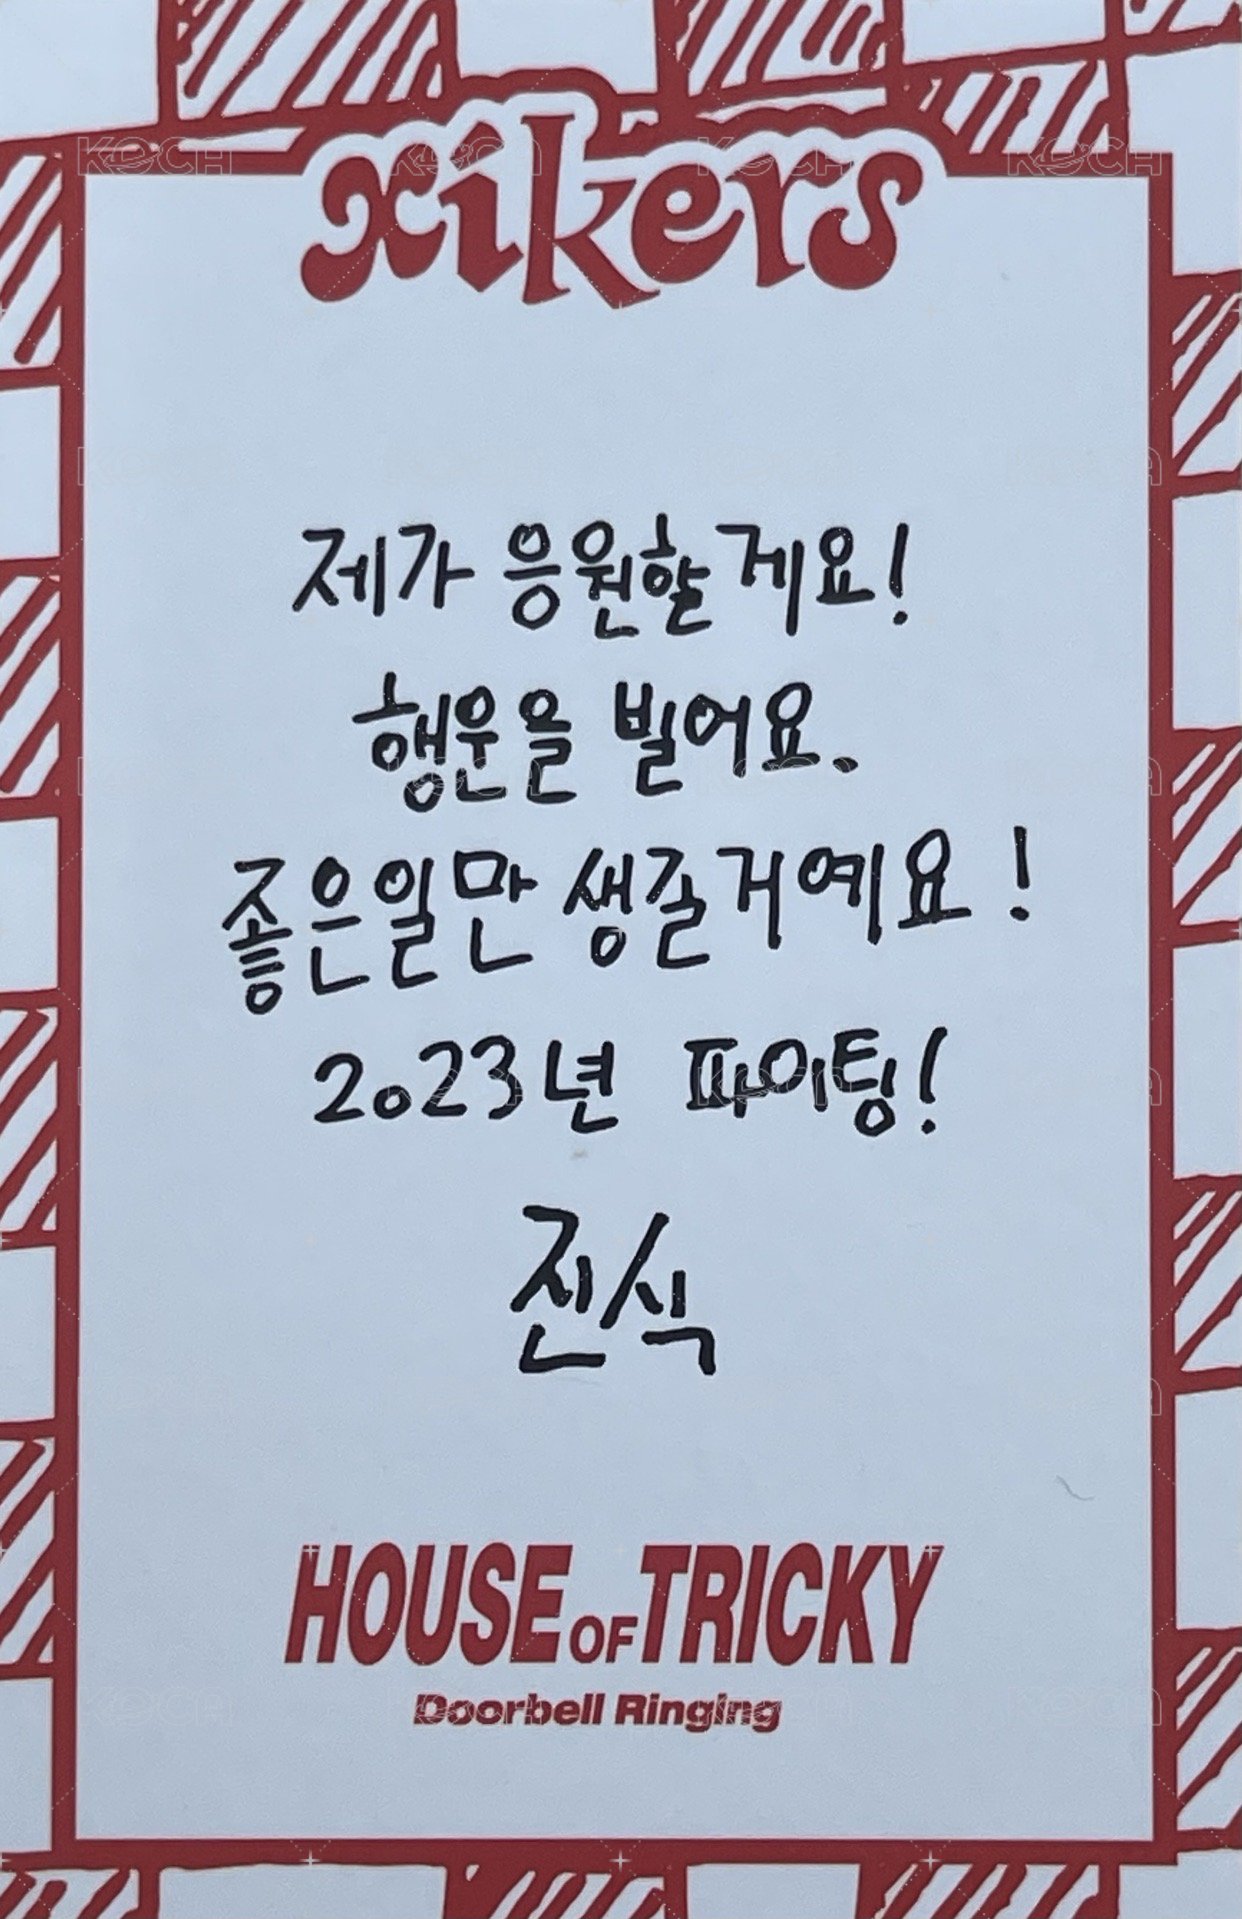 xikers
제가 응원할게요!
행운을 빌어요.
좋은일만 생길거예요!
2023년 파이팅!
진식
HOUSE OF TRICKY
Doorbell Ringing